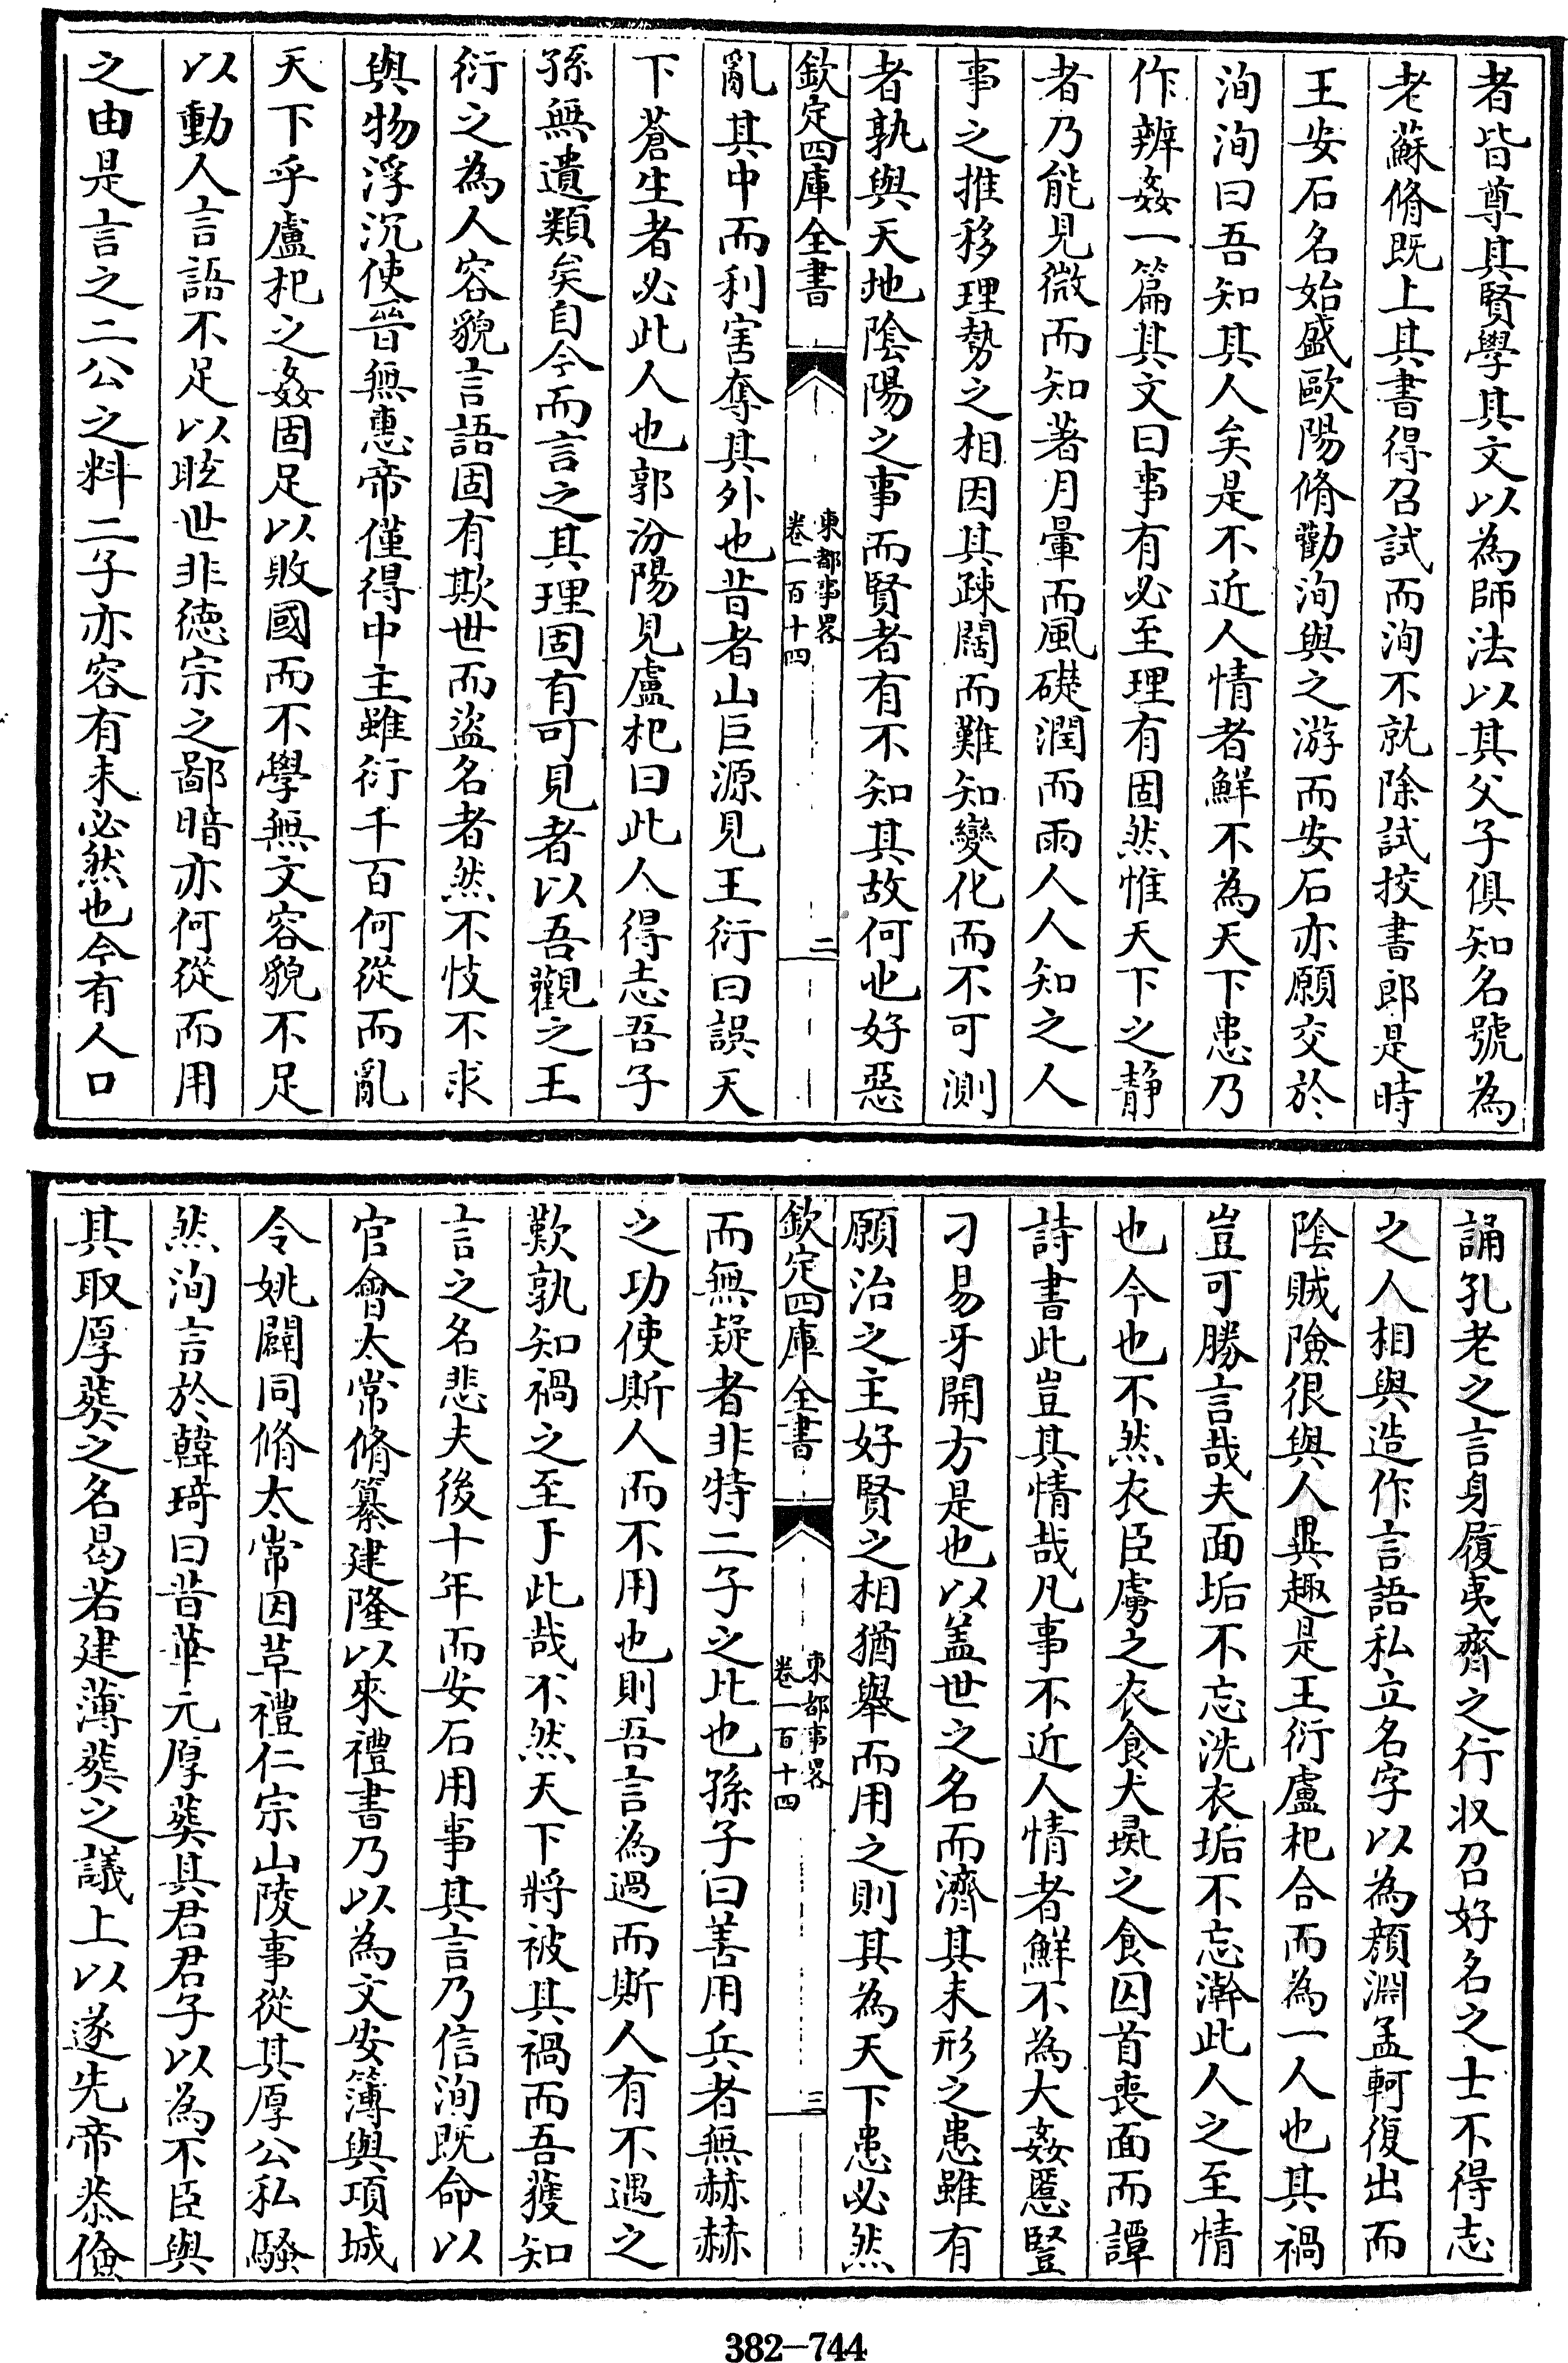 者皆尊其賢學其文以為師法以其父子俱知名號為
老蘇脩既上其書得召試而洵不就除試挍書郎是時
王安石名始盛歐陽脩勸洵與之游而安石亦願交於
洵洵曰吾知其人矣是不近人情者鮮不為天下患乃
作辨姦一篇其文曰事有必至理有固然惟天下之靜
者乃能見微而知著月暈而風礎潤而雨人人知之人
事之推移理勢之相因其疎闊而難知變化而不可測
者孰與天地陰陽之事而賢者有不知其故何也好惡
欽定四庫全書
東都事畧
卷一百十四
二
亂其中而利害奪其外也昔者山巨源見王衍曰誤天
下蒼生者必此人也郭汾陽見盧杞曰此人得志吾子
孫無遺類矣自今而言之其理固有可見者以吾觀之王
衍之為人容貌言語固有欺世而盜名者然不忮不求
與物浮沉使晉無惠帝僅得中主雖衍千百何從而亂
天下乎盧杞之姦固足以敗國而不學無文容貌不足
以動人言語不足以眩世非德宗之鄙暗亦何從而用
之由是言之二公之料二子亦容有未必然也今有人口
誦孔老之言身履夷齊之行収召好名之士不得志
之人相與造作言語私立名字以為顏淵孟軻復出而
陰賊險很與人異趣是王衍盧杞合而為一人也其禍
豈可勝言哉夫面垢不忘洗衣垢不忘澣此人之至情
也今也不然衣臣虜之衣食犬彘之食囚首喪面而譚
詩書此豈其情哉凡事不近人情者鮮不為大姦慝豎
刁易牙開方是也以盖世之名而濟其未形之患雖有
願治之主好賢之相猶舉而用之則其為天下患必然
欽定四庫全書
東都事畧
卷一百十四
三
而無疑者非特二子之比也孫子曰善用兵者無赫赫
之功使斯人而不用也則吾言為過而斯人有不遇之
歎孰知禍之至于此哉不然天下將被其禍而吾獲知
言之名悲夫後十年而安石用事其言乃信洵既命以
官會太常脩纂建隆以來禮書乃以為文安簿與項城
令姚闢同脩太常因草禮仁宗山陵事從其厚公私騷
然洵言於韓琦曰昔華元厚葬其君君子以為不臣與
其取厚葬之名曷若建薄葬之議上以遂先帝恭儉
382—744